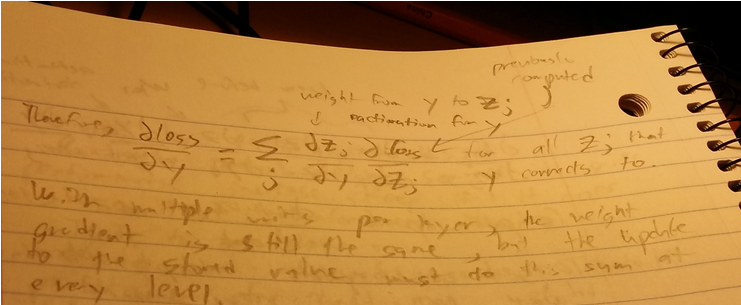 previously
computed
weight from y to z_j
activation for y
Therefore, ∂loss/∂y = Σ_j ∂z_j/∂y ∂loss/∂z_j for all z_j that
y connects to.
With multiple units per layer, the weight
gradient is still the same, but the update
to the stored value must do this sum at
every level.